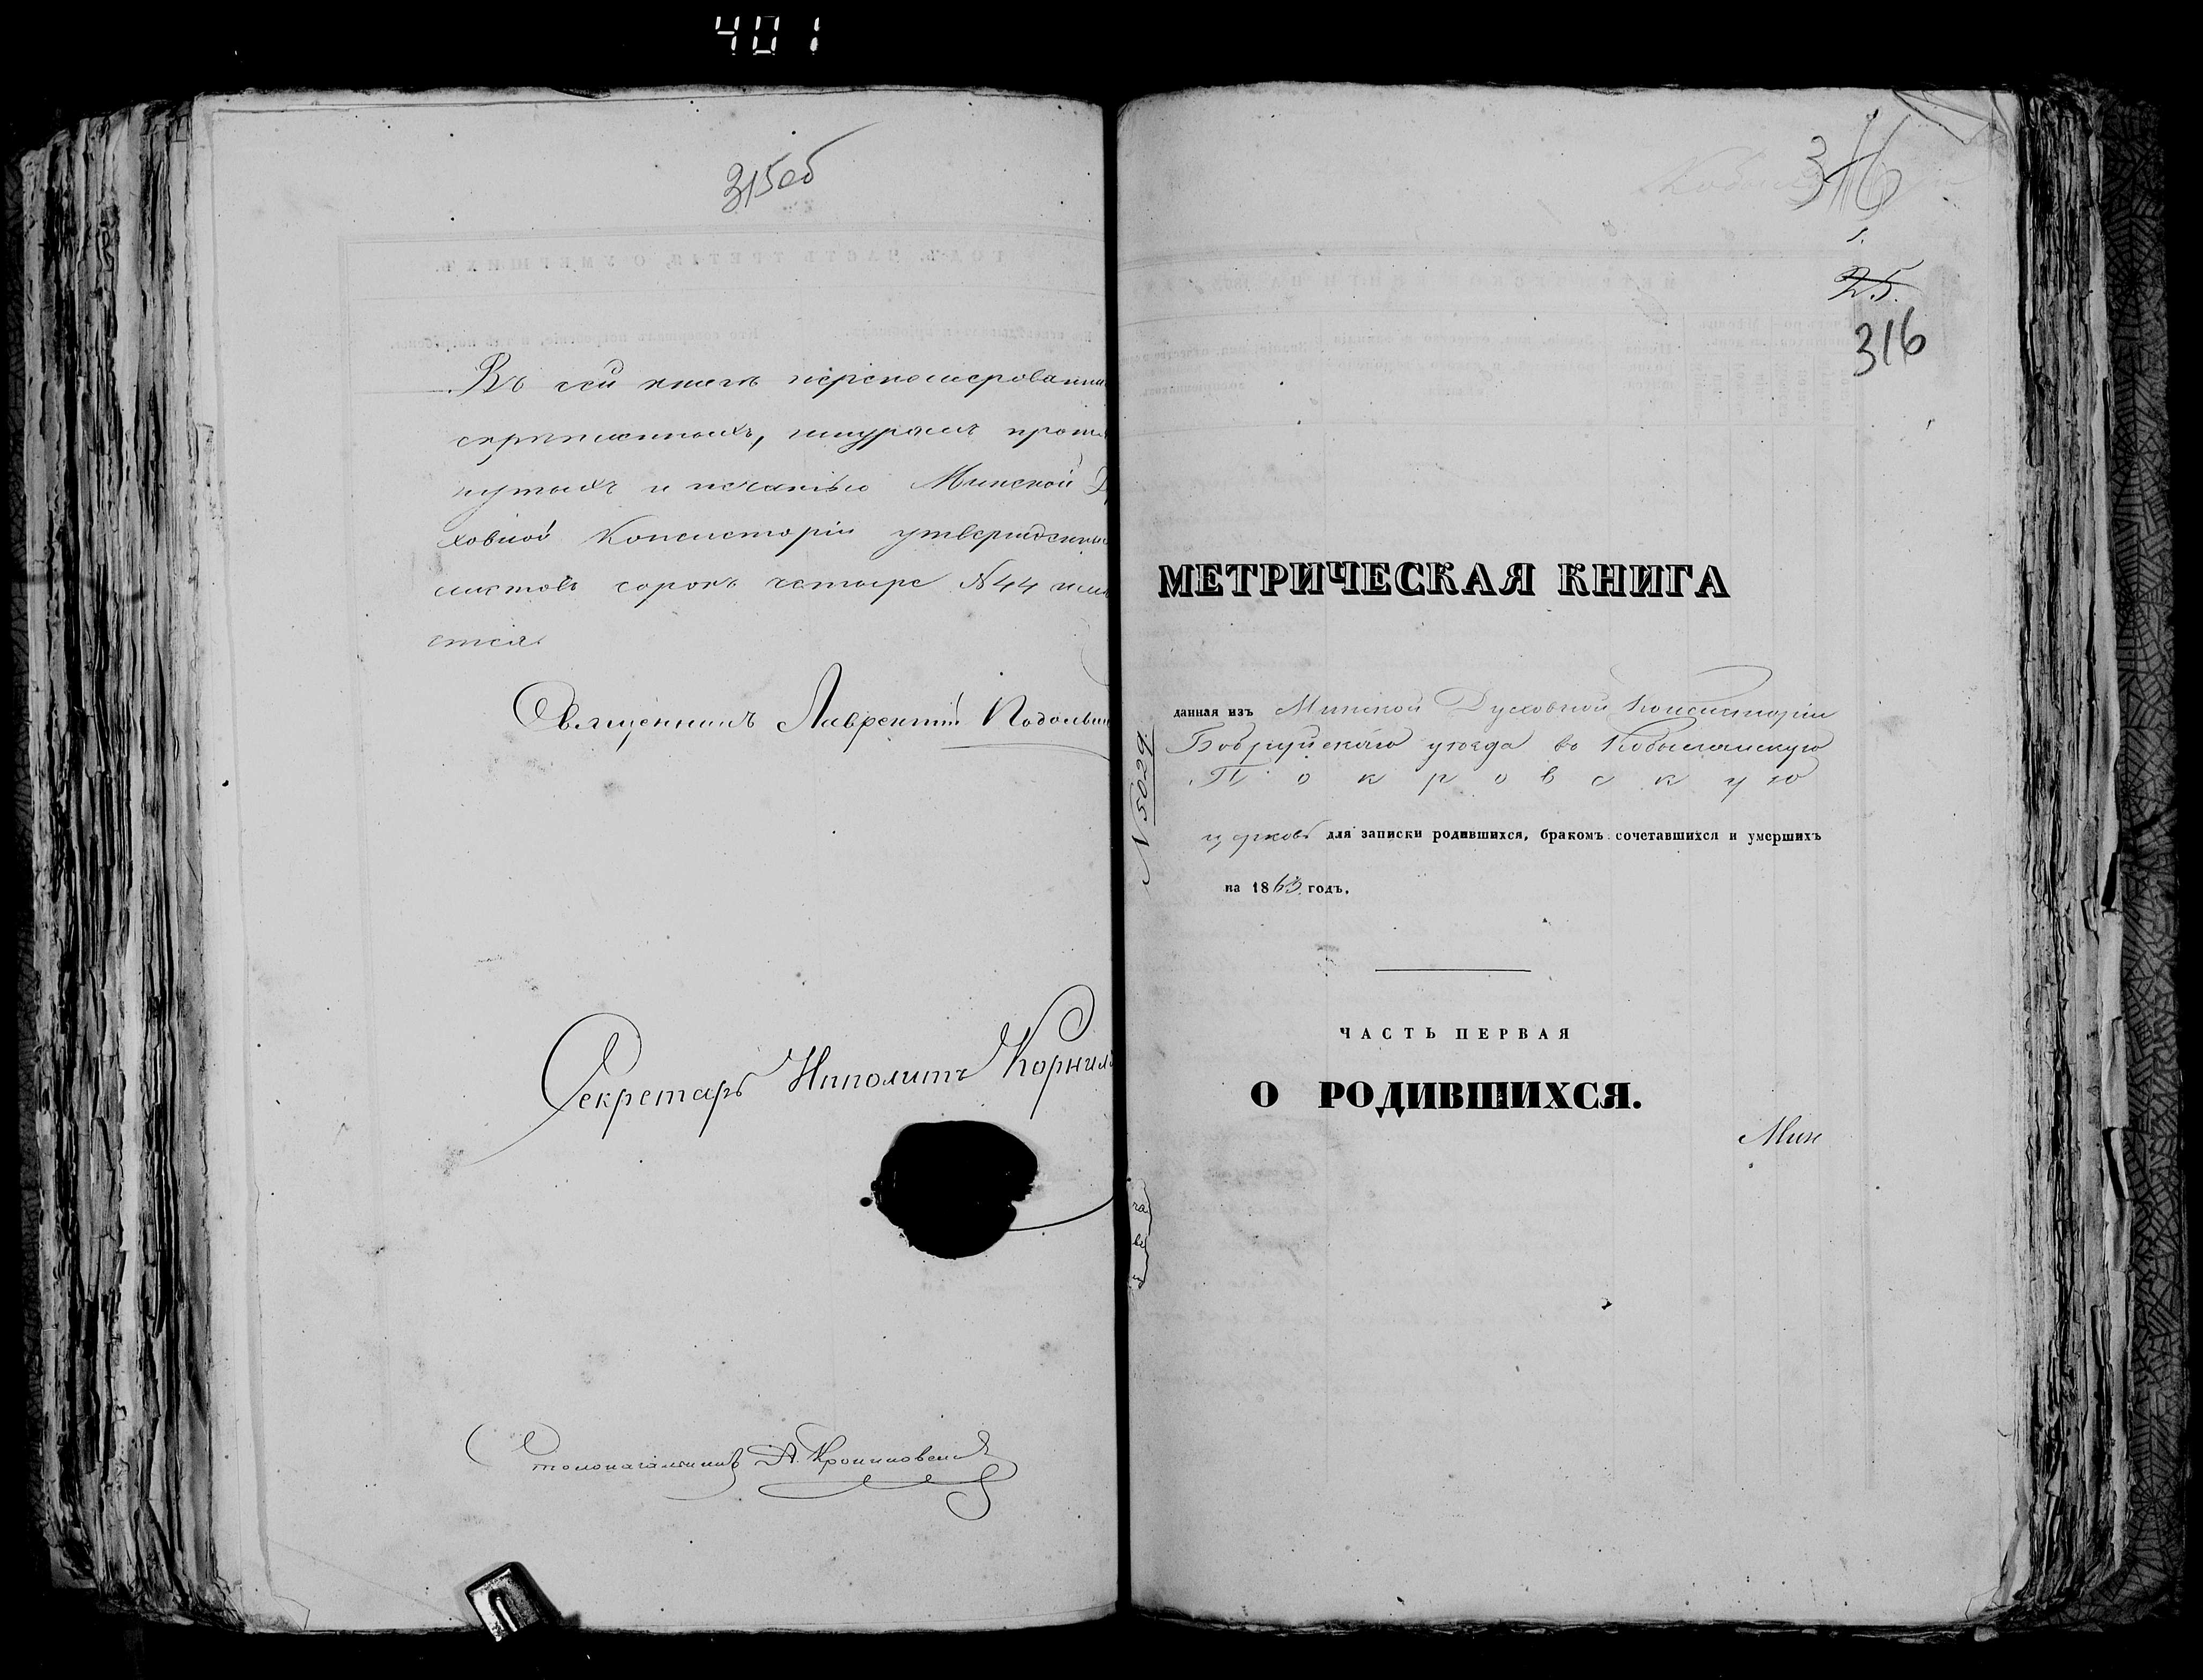 401
315об
Въ сей книгѣ перенумерованны
скрѣпленныхъ, шнуромъ прот
нутыхъ и печатью Минской Д
ховной Консисторіи утвержденны
листовъ сорокъ четыре №44 имѣ
ется.
Священникъ Лаврентій
Секретарь Иполитъ Корнил
Столоначальникъ А.
316
1.
25.
316
МЕТРИЧЕСКАЯ КНИГА
данная изъ Минской Духовной Консисторіи
Бобруйскаго уѣзда въ Кобылянскую
Покровскую
церковь для записки родившихся, бракомъ сочетавшихся и умершихъ
на 1863 годъ.
N 5029.
ЧАСТЬ ПЕРВАЯ
О РОДИВШИХСЯ.
Мин